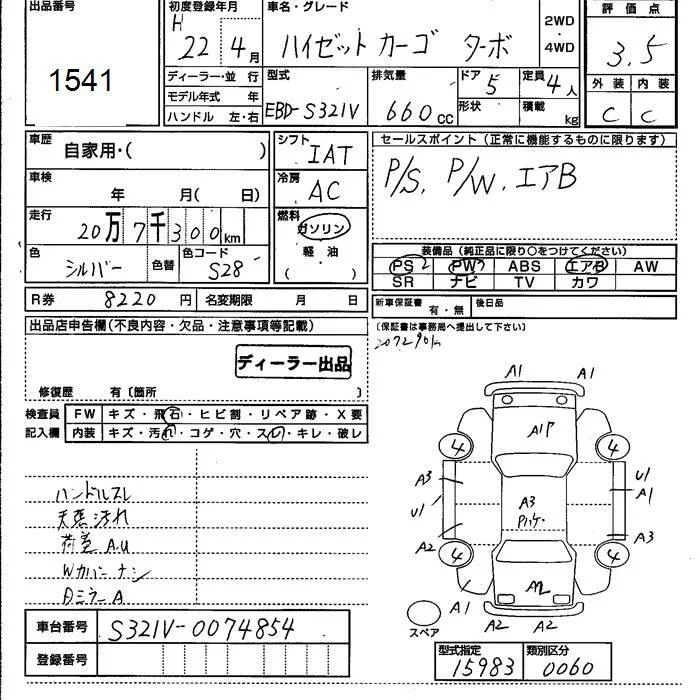 出品番号
1541
初度登録年月
H 22 年 4 月
車名・グレード
ハイゼット カーゴ ターボ
2WD
4WD
評価点
3.5
外装 内装
C C
ディーラー・並 行
モデル年式 年
ハンドル 左・右
型式
EBD-S321V
排気量
660 cc
ドア
5
形状
定員
4人
積載
kg
車歴
自家用・( )
車検
年 月( 日)
走行
20万7千300km
色
シルバー
色替
色コード
S28
シフト
IAT
冷房
AC
燃料
ガソリン
軽・油
( )
セールスポイント(正常に機能するものに限ります)
P/S, P/W, エアB
装備品(純正品に限り○をつけてください)
PS PW ABS エアB AW
SR ナビ TV カワ
R券 8220 円 名変期限 月 日
新車保証書 有・無 後日品
(保証書は事務局へ提出して下さい)
出品店申告欄(不良内容・欠品・注意事項等記載)
ディーラー出品
修復歴 有〔箇所 〕
検査員
記入欄
FW キズ・飛石・ヒビ割・リペア跡・X要
内装 キズ・汚れ・コゲ・穴・スレ・キレ・破レ
ハンドルスレ
天張汚れ
荷室A.U
Wカバーナシ
Dミラー A
A1 A1
A1P
4 4
A3 U1
A1
U1 A3
A2 A3
4 4
A2
A1 A2 A2
スペア
車台番号 S321V-0074854
登録番号
型式指定 類別区分
15983 0060